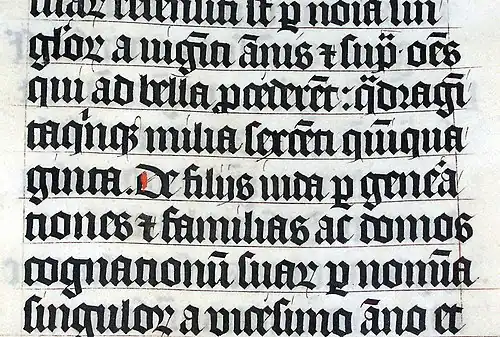 suaꝝ recensiti st̄ ꝑ noīa sin
gl̄oꝝ a uigīti ānis ⁊ sup̄· oēs
qui ad bella ꝓcederēt: qͣdragī
taqͥnqꝫ milia sexcēti qͥnqua
ginta. De filijs iuda ꝑ gen̄ea
tiones ⁊ familias ac domos
cognationū suaꝝ ꝑ nomīa
singuloꝝ a vicesimo āno et